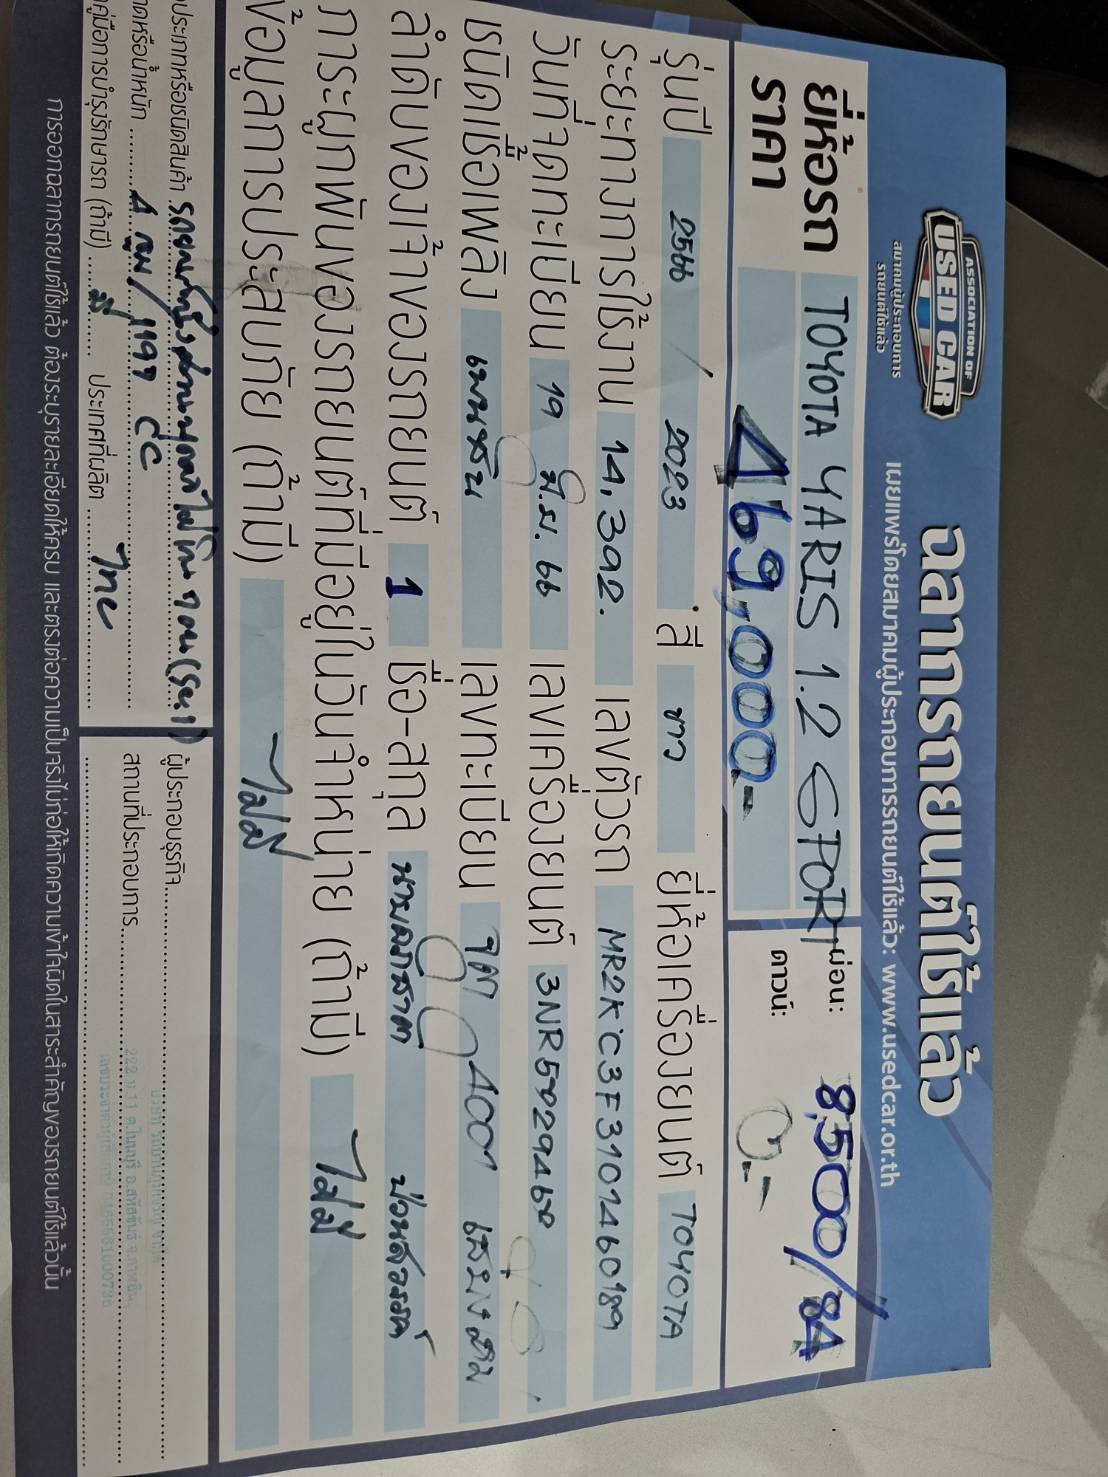 ASSOCIATION OF
USED CAR
สมาคมผู้ประกอบการ
รถยนต์ใช้แล้ว
ฉลากรถยนต์ใช้แล้ว
เผยแพร่โดยสมาคมผู้ประกอบการรถยนต์ใช้แล้ว: www.usedcar.or.th
ยี่ห้อรถ TOYOTA YARIS 1.2 SPORT ผ่อน: 8,500/84
ราคา 469,000.- ดาวน์: 0.-
รุ่นปี 2566 / 2023 สี ขาว ยี่ห้อเครื่องยนต์ TOYOTA
ระยะทางการใช้งาน 14,392. เลขตัวรถ MR2KC3F3101460189
วันที่จดทะเบียน 19 มิ.ย. 66 เลขเครื่องยนต์
ชนิดเชื้อเพลิง เบนซิน เลขทะเบียน 4001
ลำดับของเจ้าของรถยนต์ 1 ชื่อ-สกุล
ภาระผูกพันของรถยนต์ที่มีอยู่ในวันจำหน่าย (ถ้ามี) ไม่มี
ข้อมูลการประสบภัย (ถ้ามี) ไม่มี
ประเภทหรือชนิดสินค้า รถยนต์นั่งส่วนบุคคลไม่เกิน 7 คน (รย.1) ผู้ประกอบธุรกิจ
หรือน้ำหนัก 4 สูบ/1197 cc สถานที่ประกอบการ
คู่มือการบำรุงรักษารถ (ถ้ามี) มี ประเทศที่ผลิต ไทย
การออกฉลากรถยนต์ใช้แล้ว ต้องระบุรายละเอียดให้ครบ และตรงต่อความเป็นจริงไม่ก่อให้เกิดความเข้าใจผิดในสาระสำคัญของรถยนต์ใช้แล้วนั้น